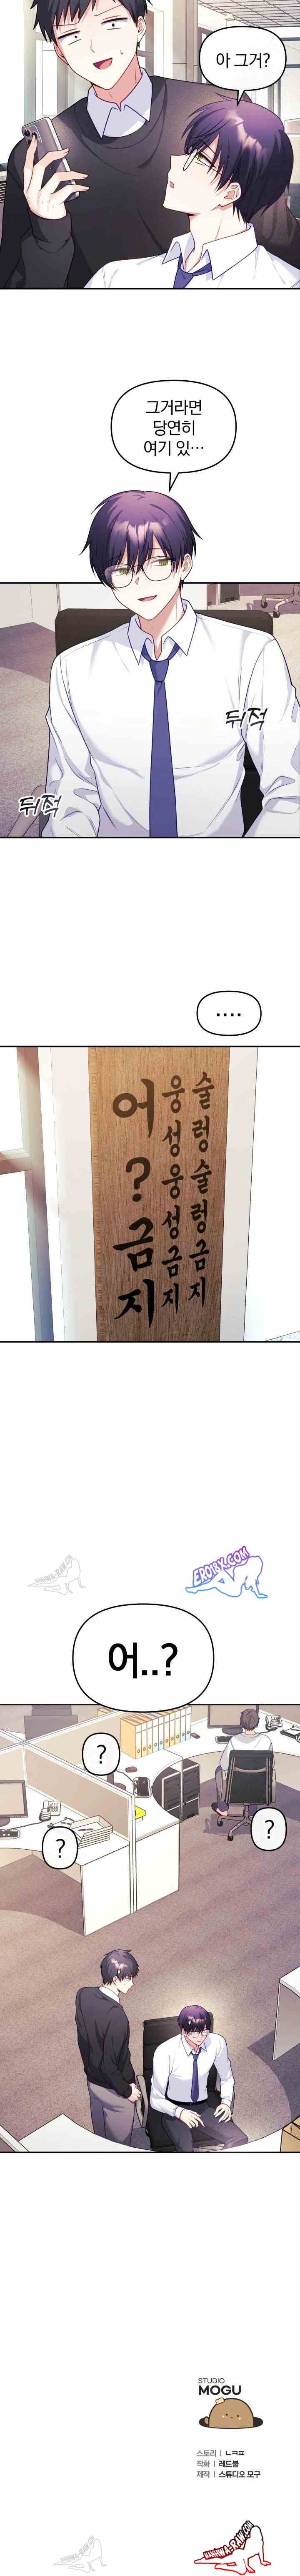 아 그거?
그거라면
당연히
여기 있…
뒤적
뒤적
....
슬렁슬렁금지
웅성웅성금지
어?금지
EROIBX.COM
어..?
?
?
?
STUDIO
MOGU
스토리 | ㄴㅋㅍ
작화 | 레드불
제작 | 스튜디오 모구